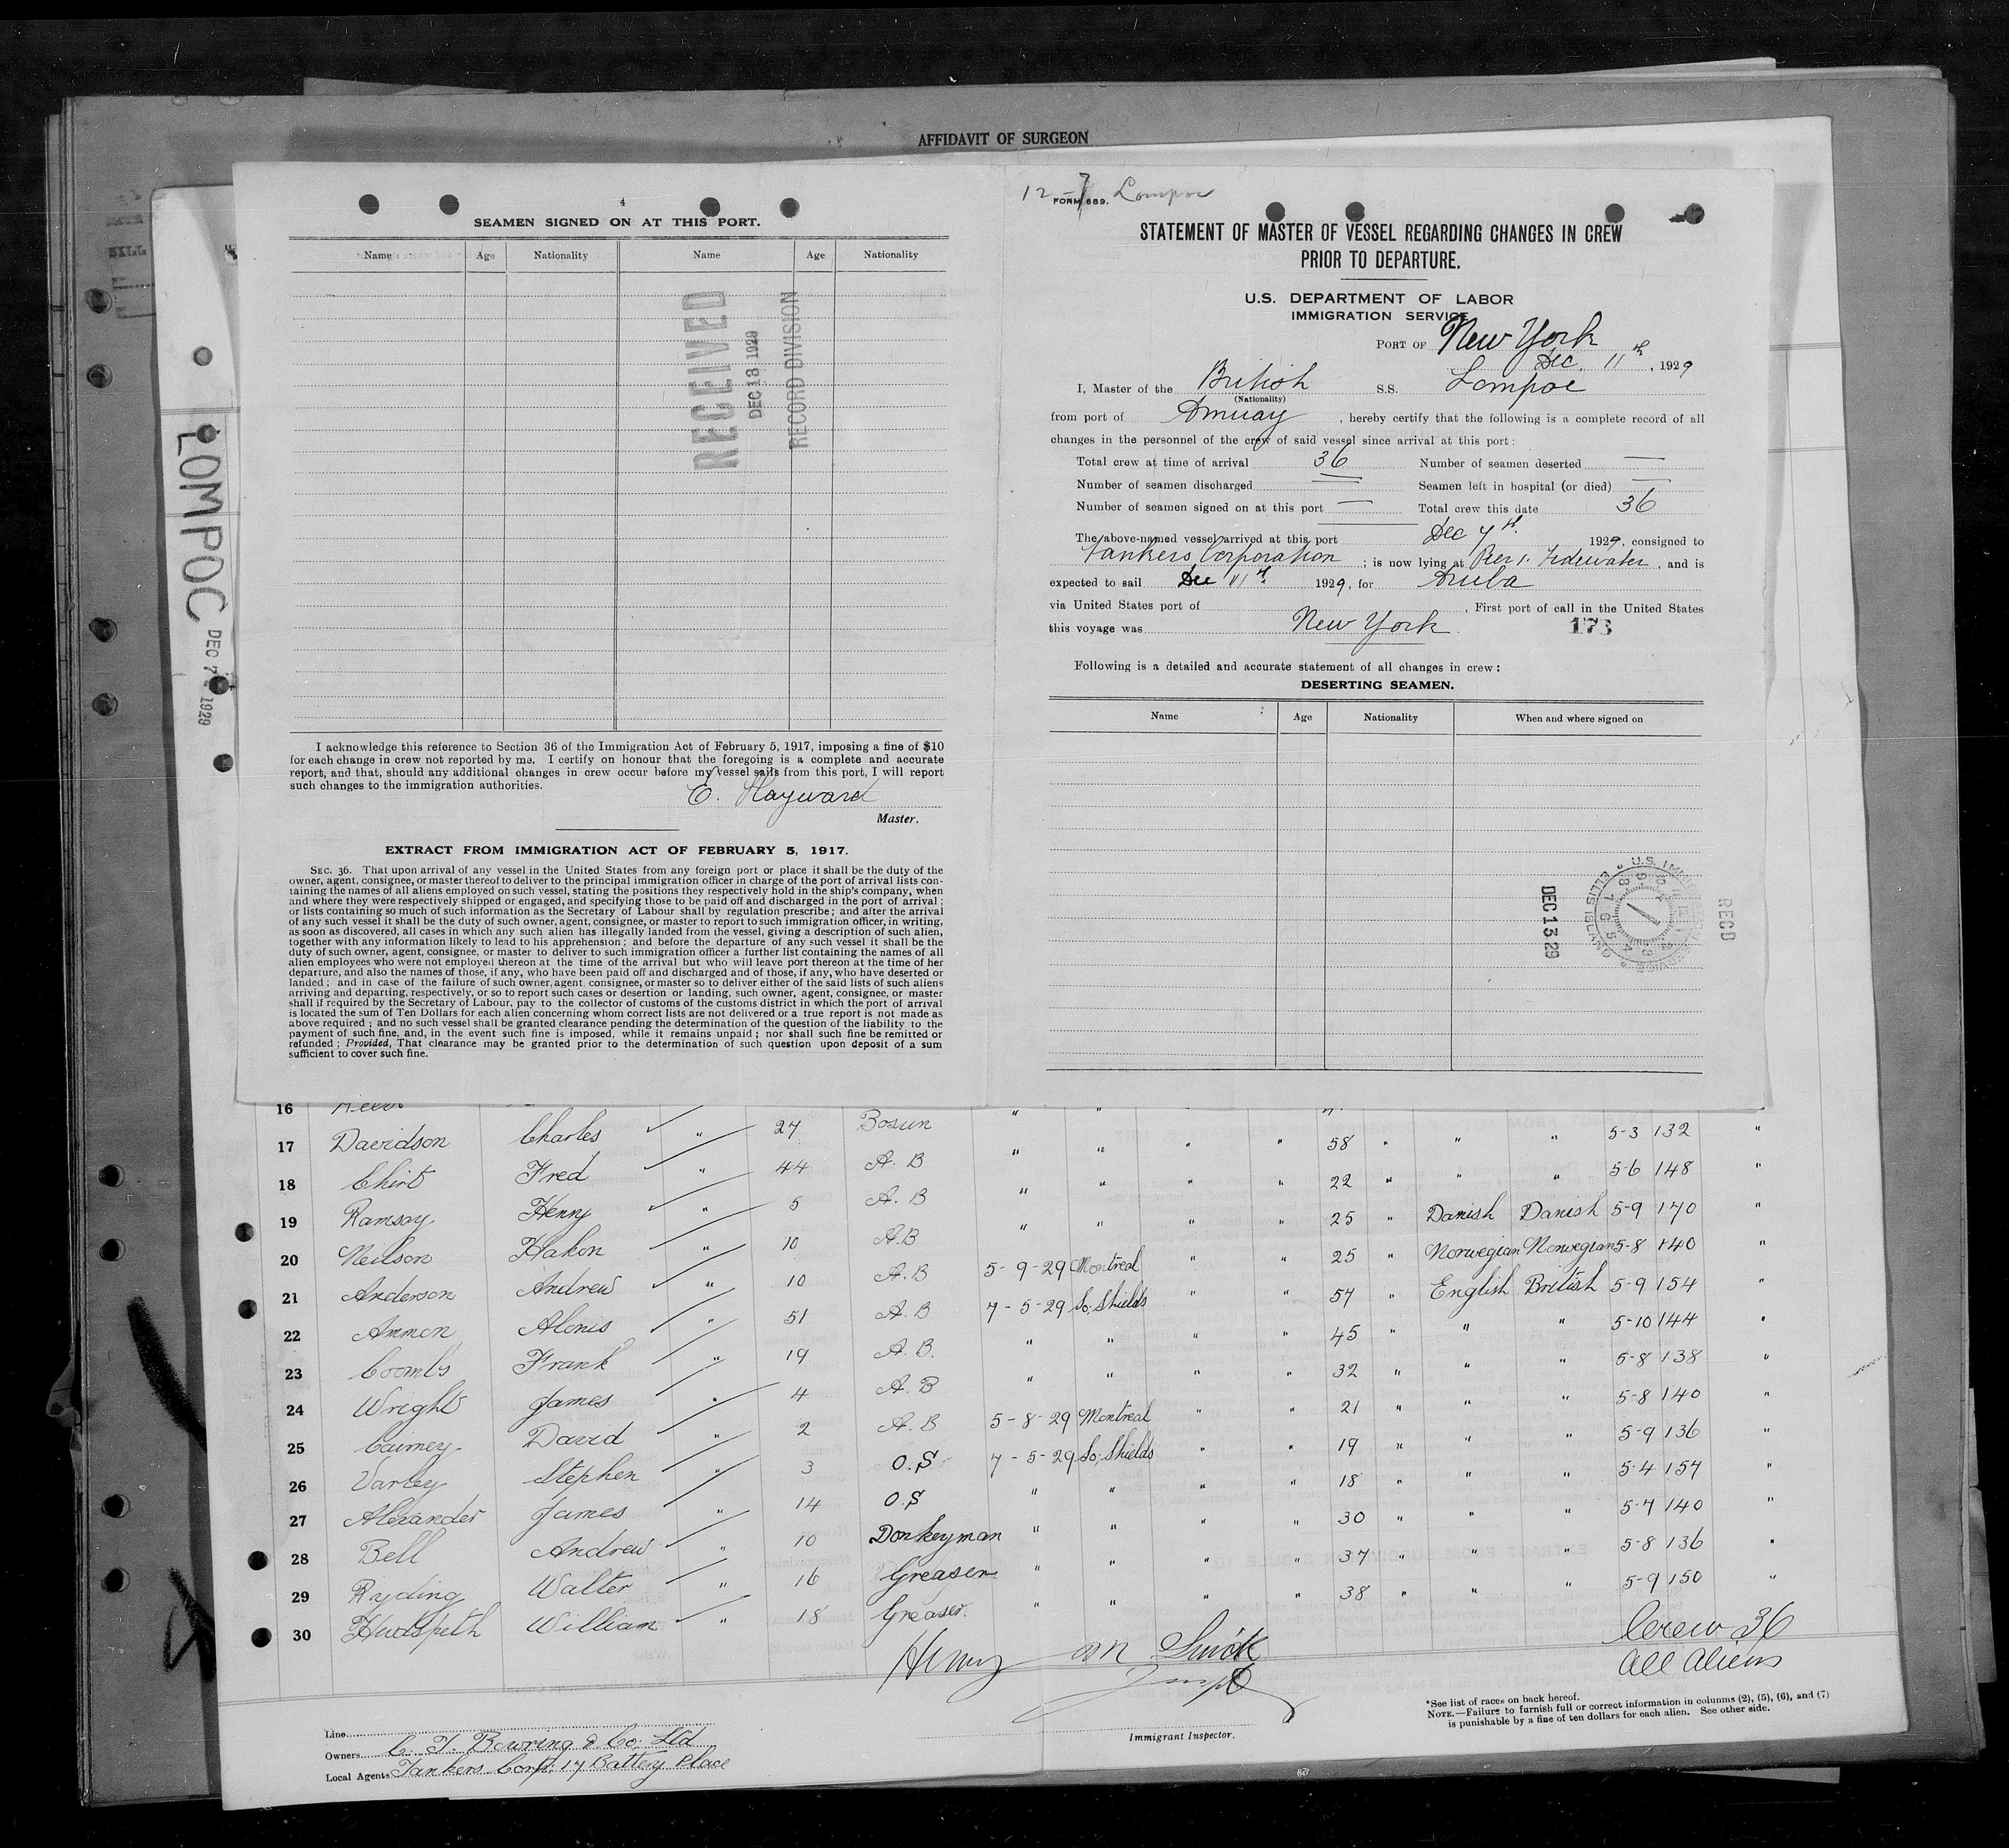 AFFIDAVIT OF SURGEON
LOMPOC
DEC 7 - 1929
4
SEAMEN SIGNED ON AT THIS PORT.
Name Age Nationality Name Age Nationality
RECEIVED
DEC 18 1929
RECORD DIVISION
I acknowledge this reference to Section 36 of the Immigration Act of February 5, 1917, imposing a fine of $10
for each change in crew not reported by me. I certify on honour that the foregoing is a complete and accurate
report, and that, should any additional changes in crew occur before my vessel sails from this port, I will report
such changes to the immigration authorities.
E. Hayward
Master.
EXTRACT FROM IMMIGRATION ACT OF FEBRUARY 5, 1917.
SEC. 36. That upon arrival of any vessel in the United States from any foreign port or place it shall be the duty of the
owner, agent, consignee, or master thereof to deliver to the principal immigration officer in charge of the port of arrival lists con-
taining the names of all aliens employed on such vessel, stating the positions they respectively hold in the ship's company, when
and where they were respectively shipped or engaged, and specifying those to be paid off and discharged in the port of arrival;
or lists containing so much of such information as the Secretary of Labour shall by regulation prescribe; and after the arrival
of any such vessel it shall be the duty of such owner, agent, consignee, or master to report to such immigration officer, in writing,
as soon as discovered, all cases in which any such alien has illegally landed from the vessel, giving a description of such alien,
together with any information likely to lead to his apprehension; and before the departure of any such vessel it shall be the
duty of such owner, agent, consignee, or master to deliver to such immigration officer a further list containing the names of all
alien employees who were not employed thereon at the time of the arrival but who will leave port thereon at the time of her
departure, and also the names of those, if any, who have been paid off and discharged and of those, if any, who have deserted or
landed; and in case of the failure of such owner, agent, consignee, or master so to deliver either of the said lists of such aliens
arriving and departing, respectively, or so to report such cases or desertion or landing, such owner, agent, consignee, or master
shall if required by the Secretary of Labour, pay to the collector of customs of the customs district in which the port of arrival
is located the sum of Ten Dollars for each alien concerning whom correct lists are not delivered or a true report is not made as
above required; and no such vessel shall be granted clearance pending the determination of the question of the liability to the
payment of such fine, and, in the event such fine is imposed, while it remains unpaid; nor shall such fine be remitted or
refunded; Provided, That clearance may be granted prior to the determination of such question upon deposit of a sum
sufficient to cover such fine.
12-7 Lompoc
FORM 689.
STATEMENT OF MASTER OF VESSEL REGARDING CHANGES IN CREW
PRIOR TO DEPARTURE.
U.S. DEPARTMENT OF LABOR
IMMIGRATION SERVICE
PORT OF New York
Dec. 11th, 1929
I, Master of the British S.S. Lompoc
(Nationality)
from port of Amuay, hereby certify that the following is a complete record of all
changes in the personnel of the crew of said vessel since arrival at this port:
Total crew at time of arrival 36 Number of seamen deserted —
Number of seamen discharged — Seamen left in hospital (or died) —
Number of seamen signed on at this port — Total crew this date 36
The above-named vessel arrived at this port Dec 7th 1929, consigned to
Tankers Corporation; is now lying at Pier 1. Tidewater, and is
expected to sail Dec 11th 1929, for Aruba
via United States port of . First port of call in the United States
this voyage was New York. 173
Following is a detailed and accurate statement of all changes in crew:
DESERTING SEAMEN.
Name Age Nationality When and where signed on
DEC 13 29
U.S. IMMIGRATION SERVICE ELLIS ISLAND
RECD
16
17 Davidson Charles " 27 Bosun " " " " 58 " " " 5-3 132 "
18 Chirt Fred " 44 A. B " " " " 22 " " " 5-6 148 "
19 Ramsay Henry " 5 A. B " " " " 25 " Danish Danish 5-9 170 "
20 Neilson Hakon " 10 A.B " " " " 25 " Norwegian Norwegian 5-8 140 "
21 Anderson Andrew " 10 A.B 5-9-29 Montreal " " 57 " English British 5-9 154 "
22 Ammon Alonis " 51 A.B 7-5-29 So. Shields " " 45 " " " 5-10 144 "
23 Coombs Frank " 19 A.B. " " " " 32 " " " 5-8 138 "
24 Wright James " 4 A.B " " " " 21 " " " 5-8 140 "
25 Cairney David " 2 A.B 5-8-29 Montreal " " 19 " " " 5-9 136 "
26 Varley Stephen " 3 O.S 7-5-29 So. Shields " " 18 " " " 5-4 157 "
27 Alexander James " 14 O.S " " " " 30 " " " 5-7 140 "
28 Bell Andrew " 10 Donkeyman " " " " 37 " " " 5-8 136 "
29 Ryding Walter " 16 Greaser " " " " 38 " " " 5-9 150 "
30 Hudspeth William " 18 Greaser. " "
Crew 36
All Aliens
Henry M
Immigrant Inspector.
Line
Owners C. T. Bowring & Co. Ltd
Local Agents Tankers Corp. 17 Battery Place
*See list of races on back hereof.
NOTE.—Failure to furnish full or correct information in columns (2), (5), (6), and (7)
is punishable by a fine of ten dollars for each alien. See other side.